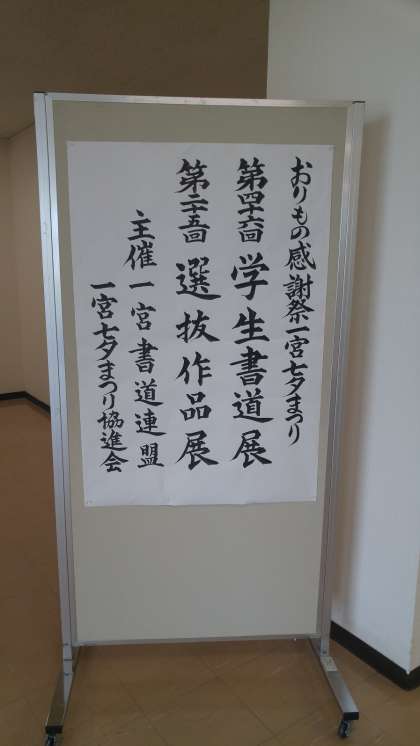 おりもの感謝祭一宮七夕まつり
第四十六回 学生書道展
第二十五回 選抜作品展
主催 一宮書道連盟
一宮七夕まつり協進会